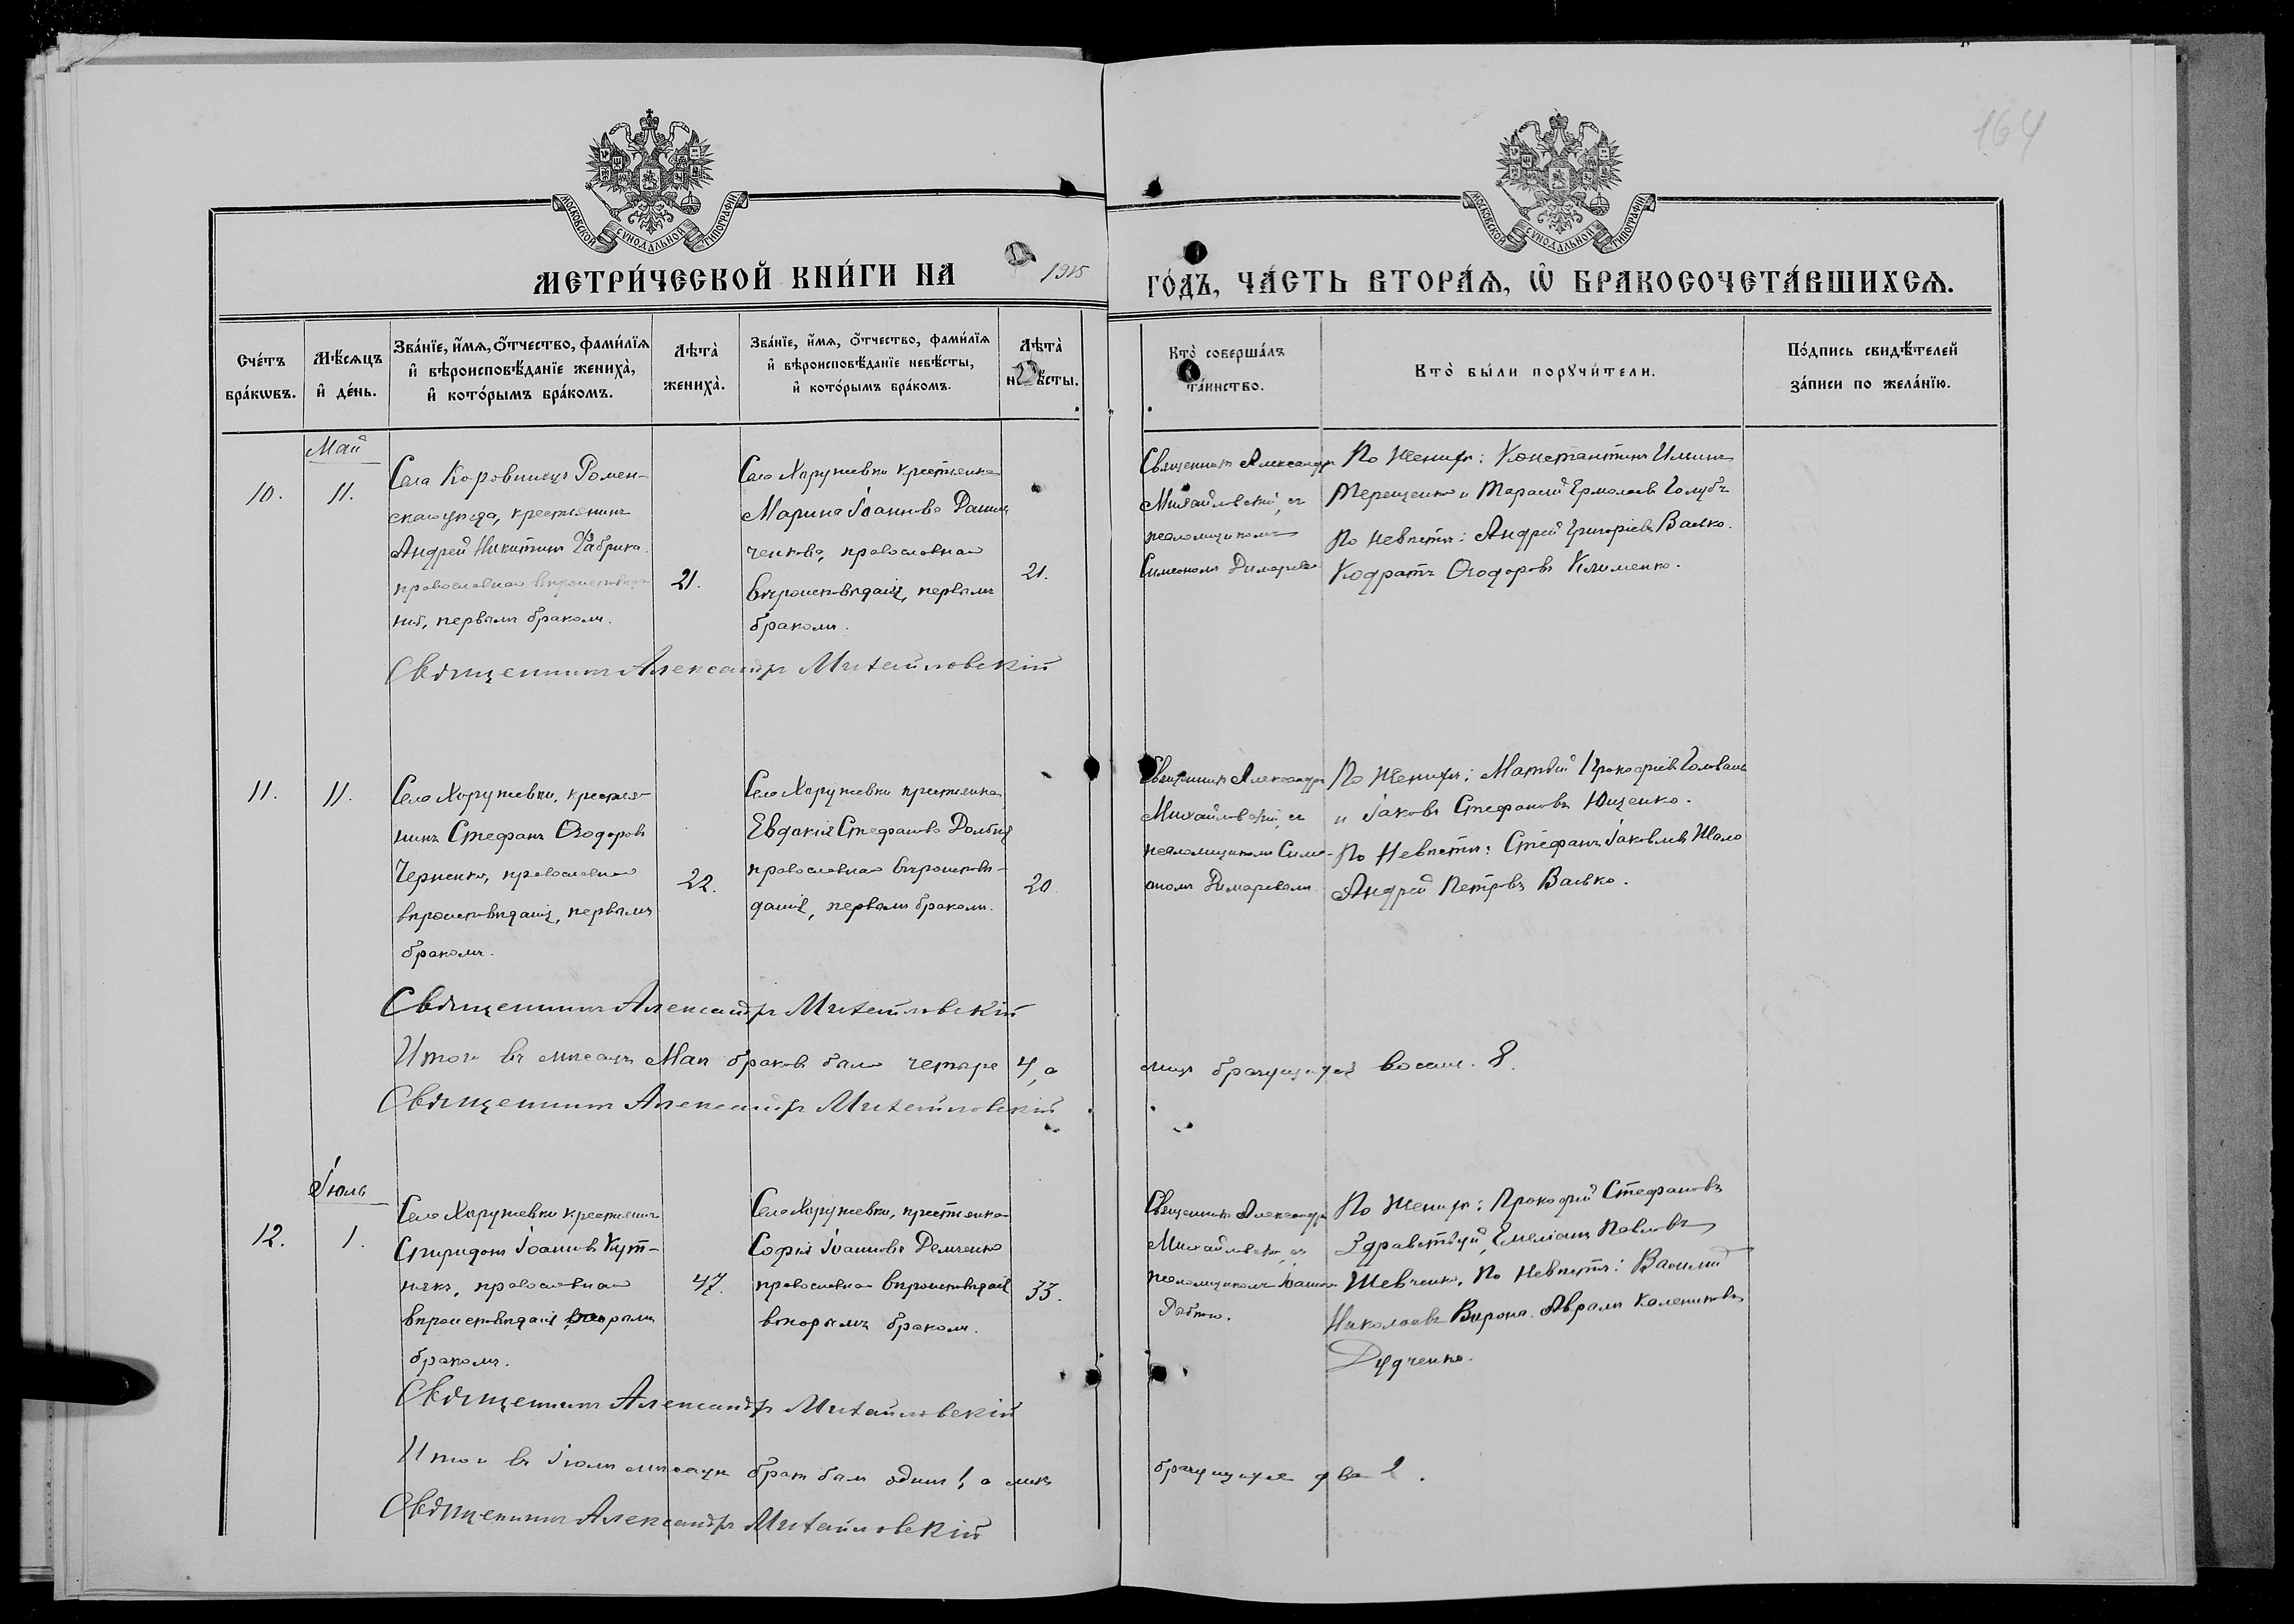 164
МОСКОВСКОЙ СУНОДАЛЬНОЙ ТИПОГРАФІИ
МОСКОВСКОЙ СУНОДАЛЬНОЙ ТИПОГРАФІИ
МЕТРИ́ЧЕСКОЙ КНИ́ГИ НА 1915 ГО́ДЪ, ЧА́СТЬ ВТОРА́Я, Ѡ҆ БРАКОСОЧЕТА́ВШИХСЯ.
Сче́тъ
бра́кѡвъ.
Мѣ́сяцъ
и҆ де́нь.
Зва́нїе, и҆́мя, ѻ҆́тчество, фами́лїя
и҆ вѣроисповѣ́данїе жениха̀,
и҆ кото́рымъ бра́комъ.
Лѣта̀
жениха̀.
Зва́нїе, и҆́мя, ѻ҆́тчество, фами́лїя
и҆ вѣроисповѣ́данїе невѣ́сты,
и҆ кото́рымъ бра́комъ.
Лѣта̀
невѣ́сты.
Кто̀ соверша́лъ
та́инство.
Кто̀ бы́ли порꙋчи́тели.
По́дпись свидѣ́телей
за́писи по жела́нїю.
Май
10.
11.
Села Коровинецъ Ромен-
скаго уѣзда, крестьянинъ
Андрей Никитинъ
православнаго вѣроисповѣда
нія, первымъ бракомъ.
21.
Села Хоружевки крестьянка
Марина Іоаннова Данил
ченкова, православнаго
вѣроисповѣданія, первымъ
бракомъ.
21.
Священникъ Александръ
Михайловскій, съ
псаломщикомъ
Симеономъ Димаревымъ
По Женихѣ: Константинъ Илиинъ
Терещенко и Тарасій Ермолаевъ Голубъ
По Невѣстѣ: Андрей Григоріевъ Валко.
Кодратъ Ѳеодоровъ Клименко.
Священникъ Александръ Михайловскій
11.
11.
Села Хоружевки, крестья-
нинъ Стефанъ Ѳеодоровъ
Черненко, православнаго
вѣроисповѣданія, первымъ
бракомъ.
22.
Села Хоружевки крестьянка
Евдокія Стефанова Долбня
православнаго вѣроисповѣ-
данія, первымъ бракомъ.
20
Священникъ Александръ
Михайловскій, съ
псаломщикомъ Симе-
ономъ Димаревымъ
По Женихѣ: Матѳій Прокофіевъ Головань
и Іаковъ Стефановъ Ющенко.
По Невѣстѣ: Стефанъ Іаковлевъ Шало
Андрей Петровъ Валко.
Священникъ Александръ Михайловскій
Итого въ мѣсяцѣ Маѣ браковъ было четыре 4, а лицъ брачущихся восемь. 8.
Священникъ Александръ Михайловскій
Іюль
12.
1.
Села Хоружевки крестьянинъ
Спиридонъ Іоанновъ Кут-
някъ, православнаго
вѣроисповѣданія вторымъ
бракомъ.
47.
Села Хоружевки, крестьянка
Софія Іоаннова Демченко
православнаго вѣроисповѣданія
вторымъ бракомъ.
33.
Священникъ Александръ
Михайловскій, съ
псаломщикомъ Іоанномъ
По Женихѣ: Прокофій Стефановъ
Здравствуй, Емеліанъ Павловъ
Шевченко. По Невѣстѣ: Василій
Николаевъ Вирона. Аврамъ Калениковъ
Дудченко.
Священникъ Александръ Михайловскій
Итого въ Іюлѣ мѣсяцѣ бракъ былъ одинъ 1, а лицъ брачущихся два 2.
Священникъ Александръ Михайловскій